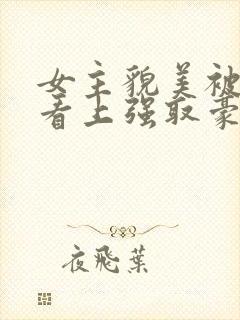 女主貌美被
看上强取豪
夜飛葉